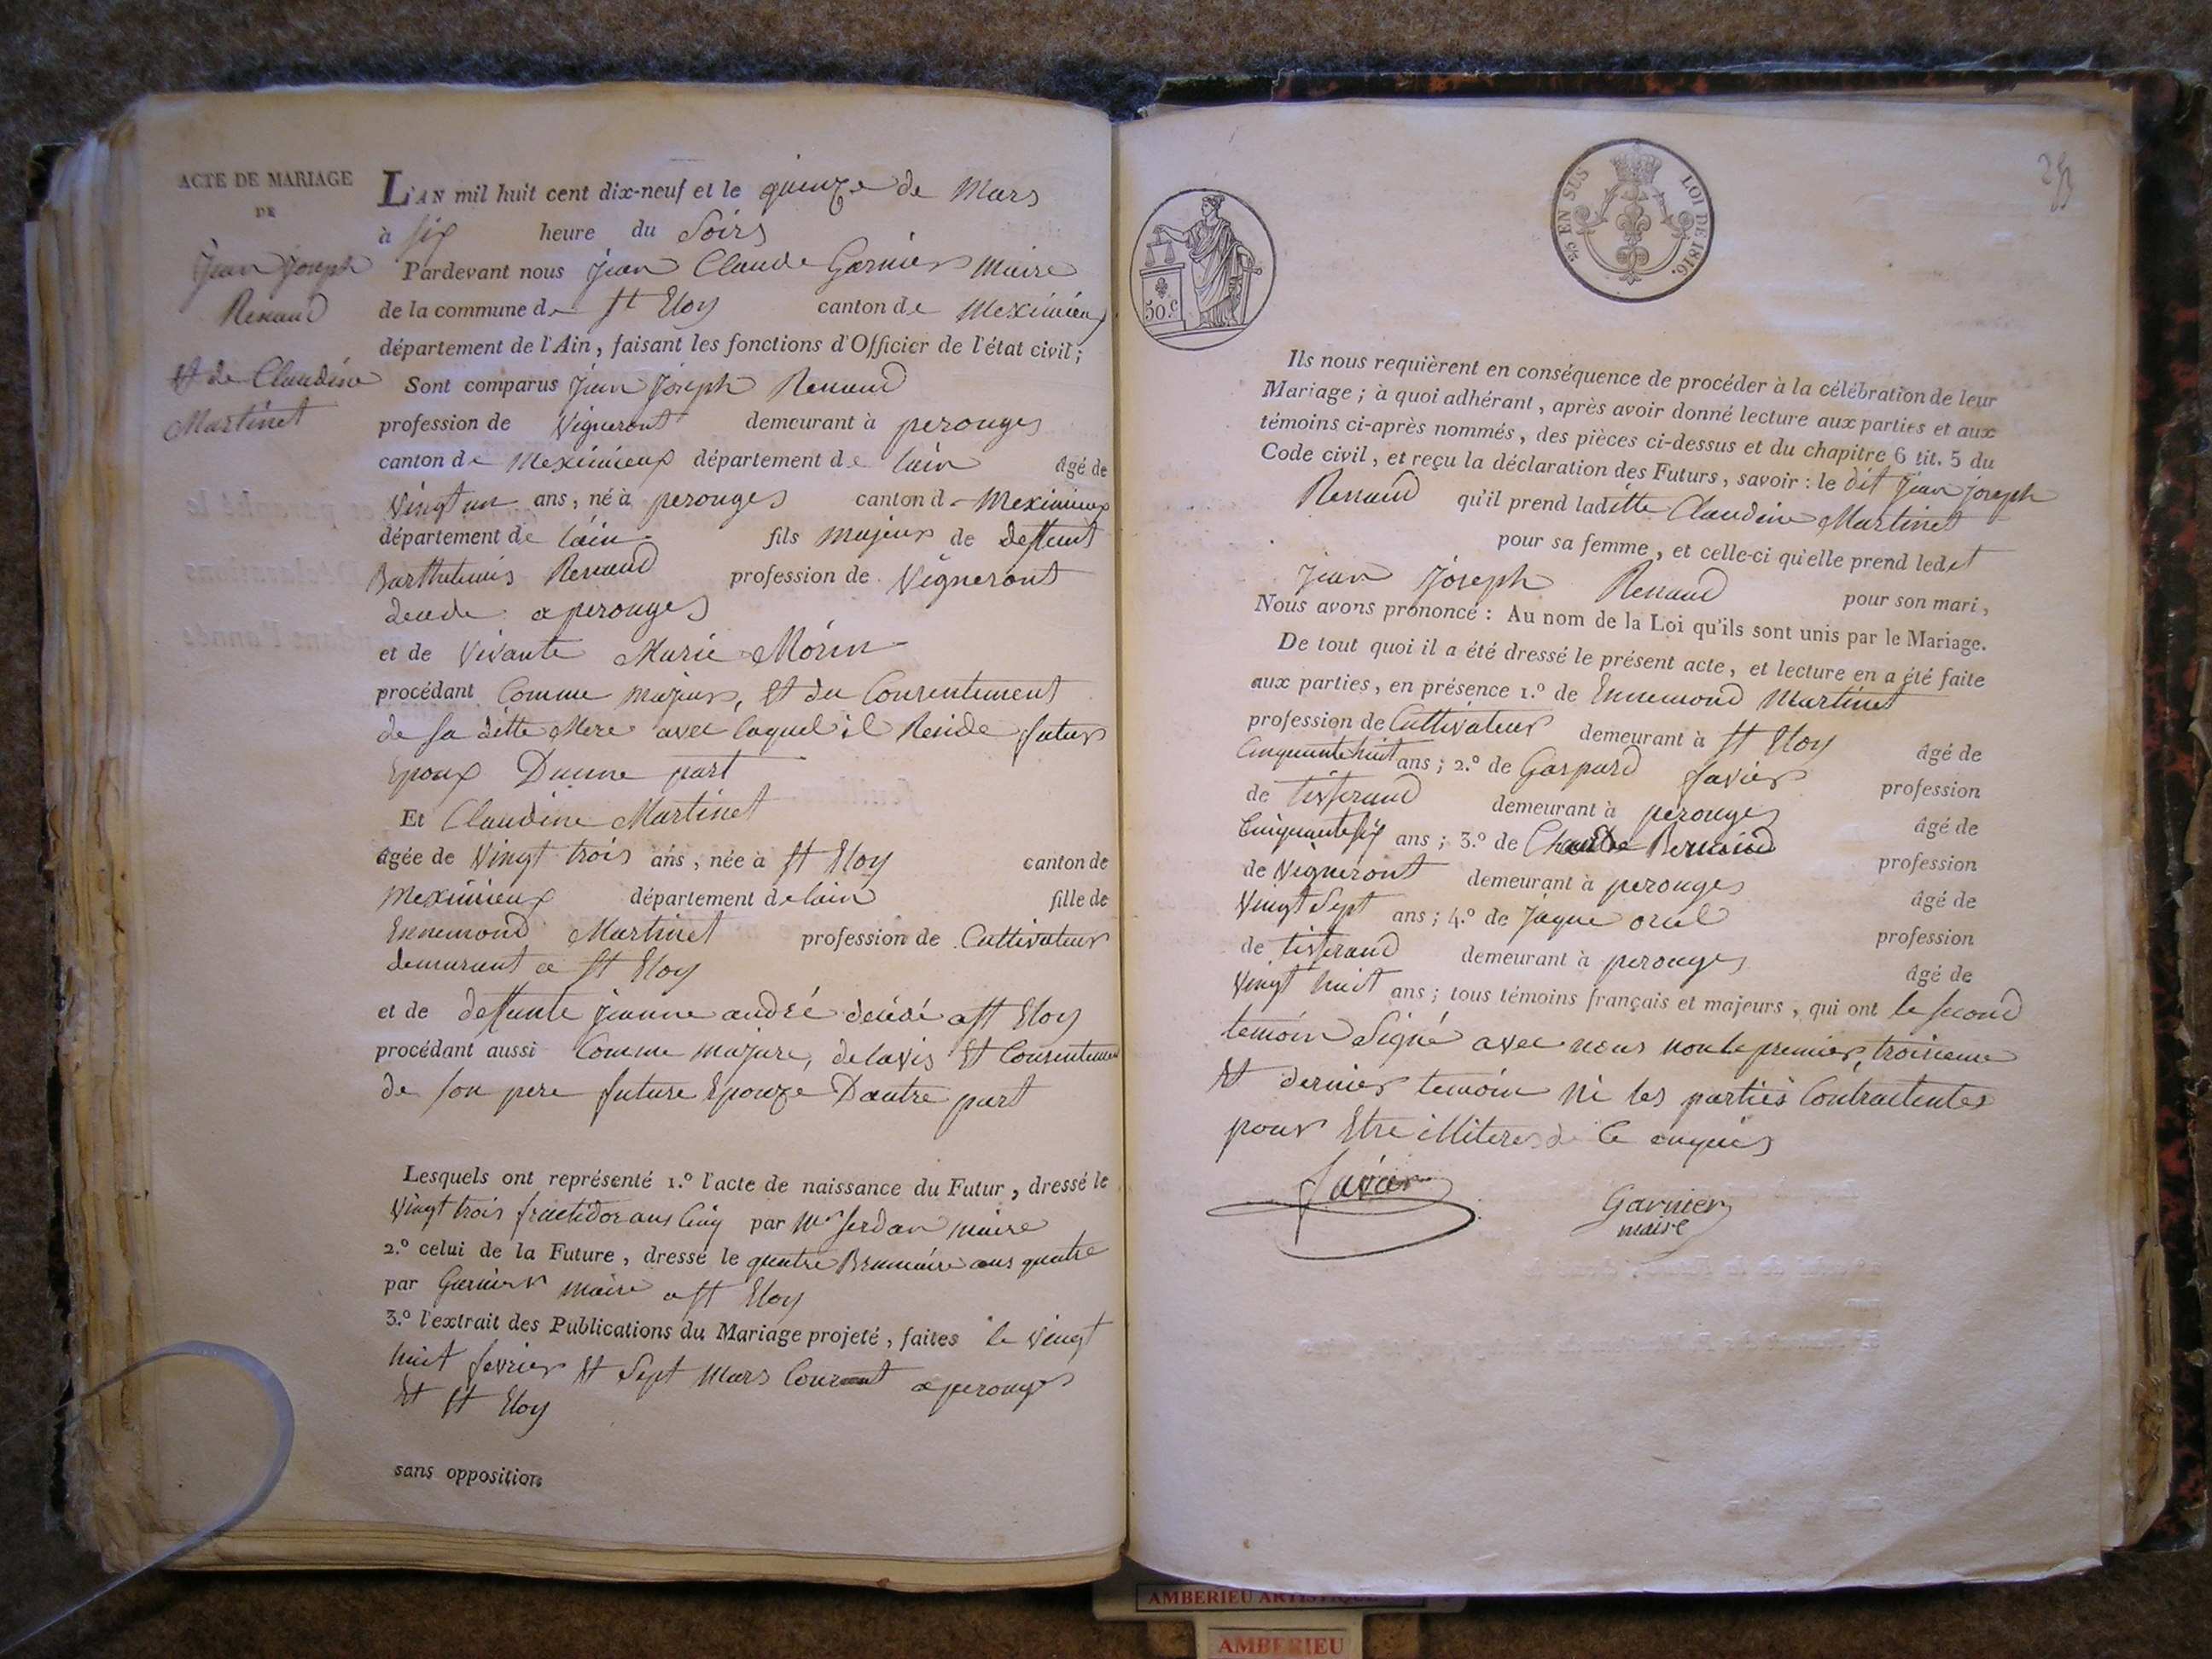 ACTE DE MARIAGE
DE
Jean Joseph
Renaud
Et de Claudine
Martinet
L'AN mil huit cent dix-neuf et le quinze de Mars
à six heure du Soirs
Pardevant nous Jean Claude Garnier Maire
de la commune de St Eloy canton de Meximieux
département de l'Ain, faisant les fonctions d'Officier de l'état civil;
Sont comparus Jean Joseph Renaud
profession de Vigneront demeurant à perouges
canton de Meximieux département de lain âgé de
Vingt un ans, né à perouges canton d Meximieux
département de lain fils majeur de deffunt
Barthelemis Renaud profession de Vigneront
decede a perouges
et de Vivante Marie Morin
procédant Comme majeur, Et du Consentement
de sa ditte Mere avec laquel il Reside futur
Epoux Dunne part
Et Claudine Martinet
âgée de Vingt trois ans, née à St Eloy canton de
Meximieux département de lain fille de
Ennemond Martinet profession de Cultivateur
demeurant a St Eloy
et de deffunte jeanne andré décédé a St Eloy
procédant aussi Comme majeure, de lavis Et Consentement
de son pere future Epouze Dautre part
Lesquels ont représenté 1.º l'acte de naissance du Futur, dressé le
Vingt trois fructidor ans Cinq par Mr Jordan maire
2.º celui de la Future, dressé le quatre Brumaire ans quatre
par Garnier maire a St Eloy
3.º l'extrait des Publications du Mariage projeté, faites le Vingt
huit fevrier Et Sept Mars Courant a perouges
Et St Eloy
sans opposition
3/5 EN SUS LOI DE 1816.
50.C
Ils nous requièrent en conséquence de procéder à la célébration de leur
Mariage; à quoi adhérant, après avoir donné lecture aux parties et aux
témoins ci-après nommés, des pièces ci-dessus et du chapitre 6 tit. 5 du
Code civil, et reçu la déclaration des Futurs, savoir: le dit Jean joseph
Renaud qu'il prend laditte Claudine Martinet
pour sa femme, et celle-ci qu'elle prend ledet
Jean Joseph Renaud pour son mari,
Nous avons prononcé: Au nom de la Loi qu'ils sont unis par le Mariage.
De tout quoi il a été dressé le présent acte, et lecture en a été faite
aux parties, en présence 1.º de Ennemond Martinet
profession de Cultivateur demeurant à St Eloy âgé de
Cinquante huit ans; 2.º de Gaspard favier profession
de tisserand demeurant à perouges âgé de
Cinquante six ans; 3.º de Claude profession
de Vigneront demeurant à perouges âgé de
Vingt Sept ans; 4.º de Jaque profession
de tisserand demeurant à perouges âgé de
Vingt huit ans; tous témoins français et majeurs, qui ont le second
temoin Signé avec nous non le premier, troisieme
Et dernier temoin ni les parties Contractentes
pour Etre illiteres de ce enquis
favier
Garnier
maire
AMBERIEU ARTISTIQUE
AMBERIEU